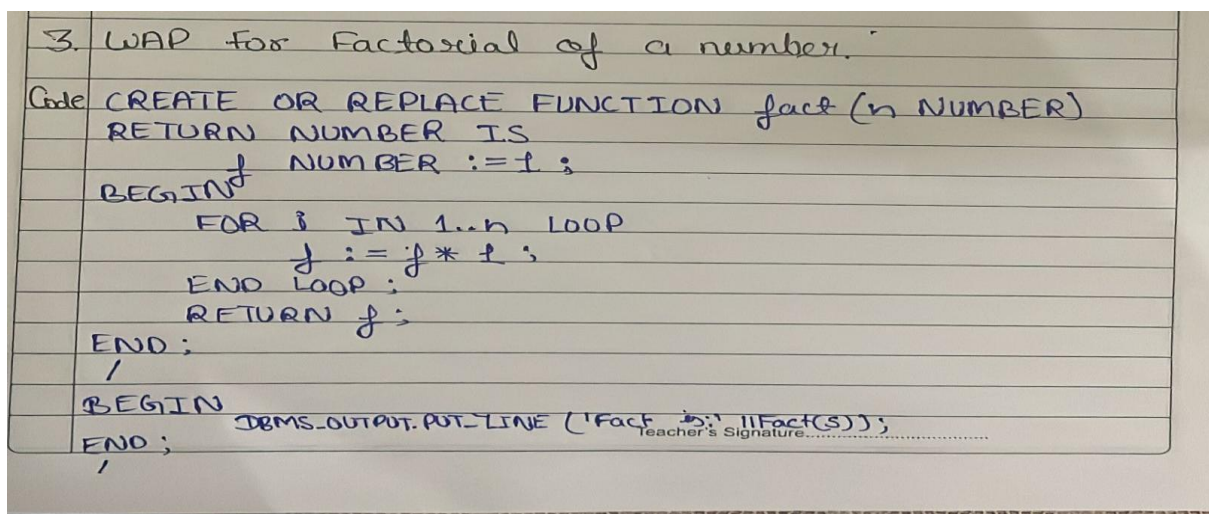 3. WAP for Factorial of a number.
Code CREATE OR REPLACE FUNCTION fact (n NUMBER)
RETURN NUMBER IS
f NUMBER := 1 ;
BEGIN
FOR i IN 1..n LOOP
f := f * 1 ;
END LOOP ;
RETURN f ;
END ;
/
BEGIN
DBMS_OUTPUT.PUT_LINE ('Fact is:' ||Fact(5)) ;
Teacher's Signature
END ;
/